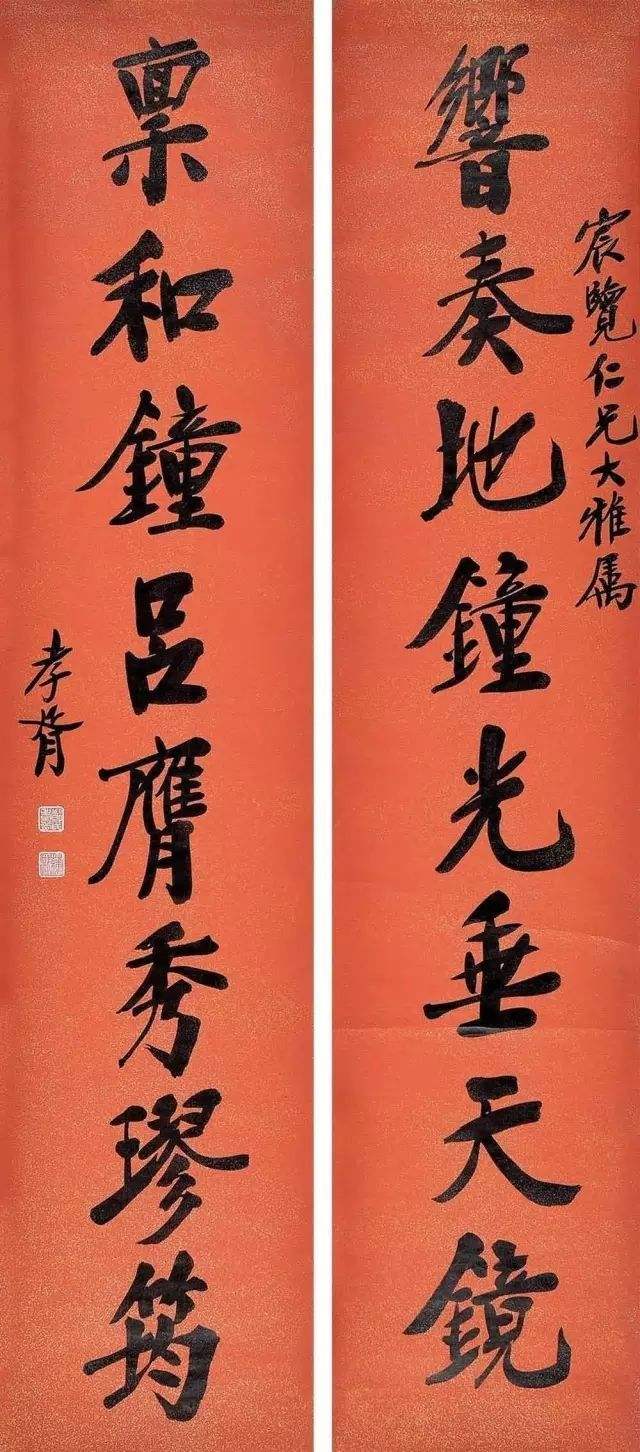 宸覽仁兄大雅属
響奏地鐘光垂天鏡
禀和鐘呂膺秀璆筠
孝胥